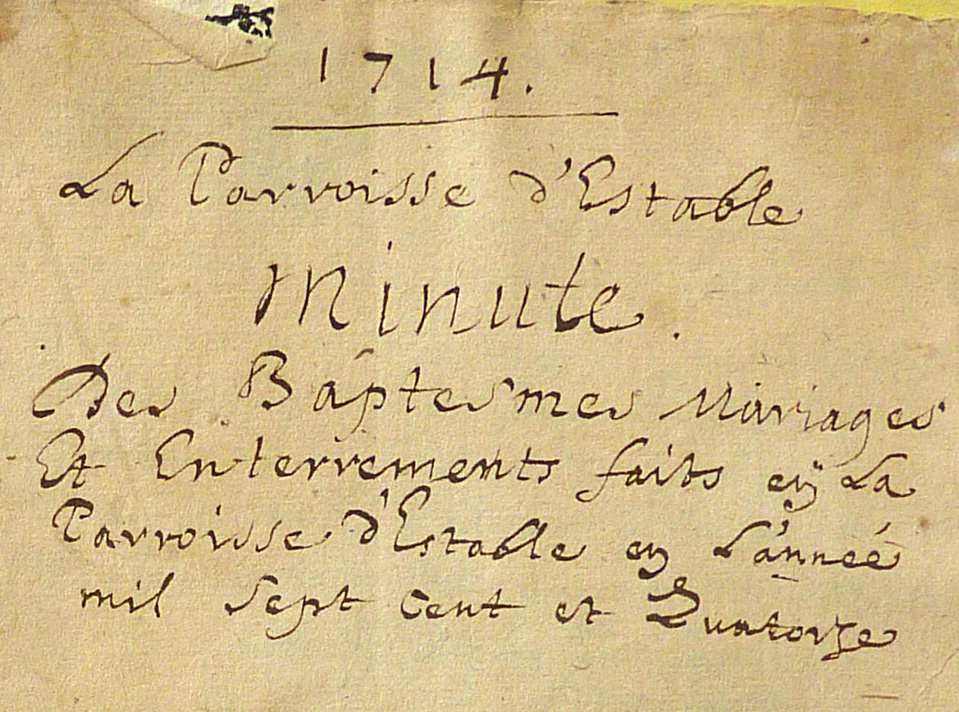 1714.
La Parroisse d'Estable
Minute.
Des Baptesmes Mariages
Et Enterrements faits en La
Parroisse d'Estable en L'année
mil sept cent et Quatorze